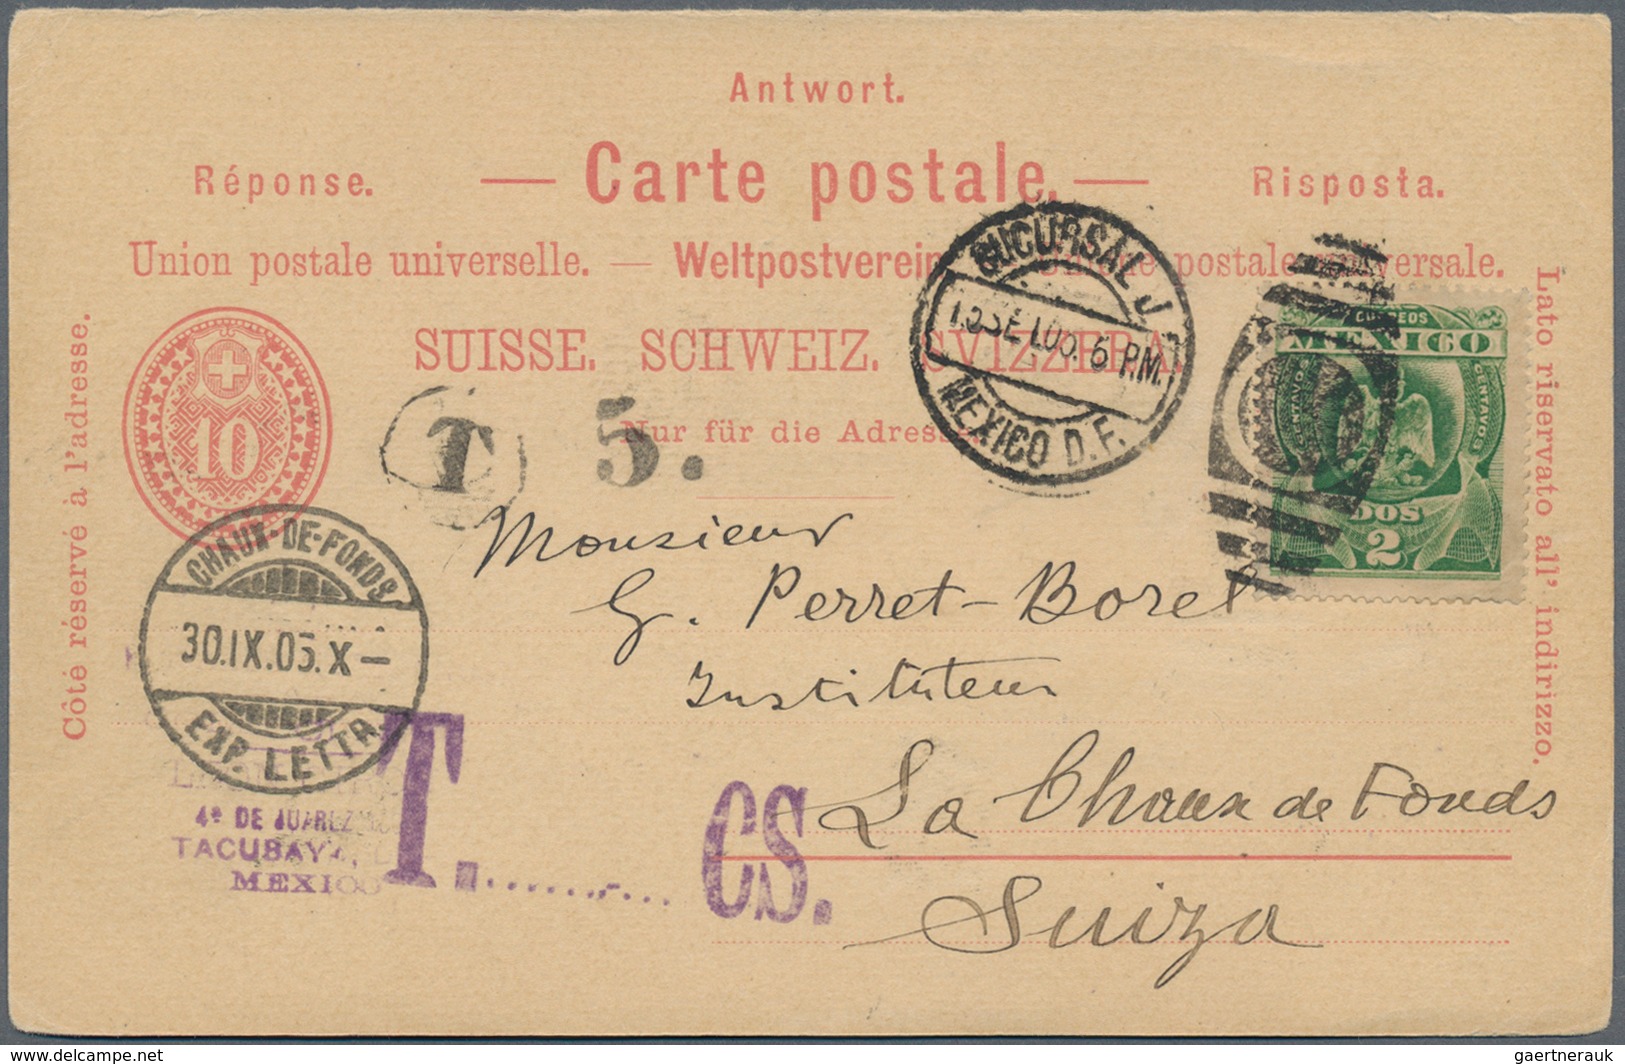 Antwort.
Réponse. — Carte postale. — Risposta.
Union postale universelle. — Weltpostverein postale universale.
SUISSE. SCHWEIZ. SVIZZERA.
Nur für die Adresse.
Côté réservé à l'adresse.
Lato riservato all' indirizzo.
10
T 5.
SUCURSAL J
6 P.M.
MEXICO D. F.
CORREOS
MEXICO
CENTAVOS
CENTAVOS
DOS
2
Monsieur
G. Perret-Borel
Instituteur
La Chaux de Fonds
Suiza
CHAUX-DE-FONDS
30.IX.05.X—
EXP. LETTR.
4ª DE JUAREZ
TACUBAYA,
MEXICO
T. CS.
www.delcampe.net
gaertnerauk